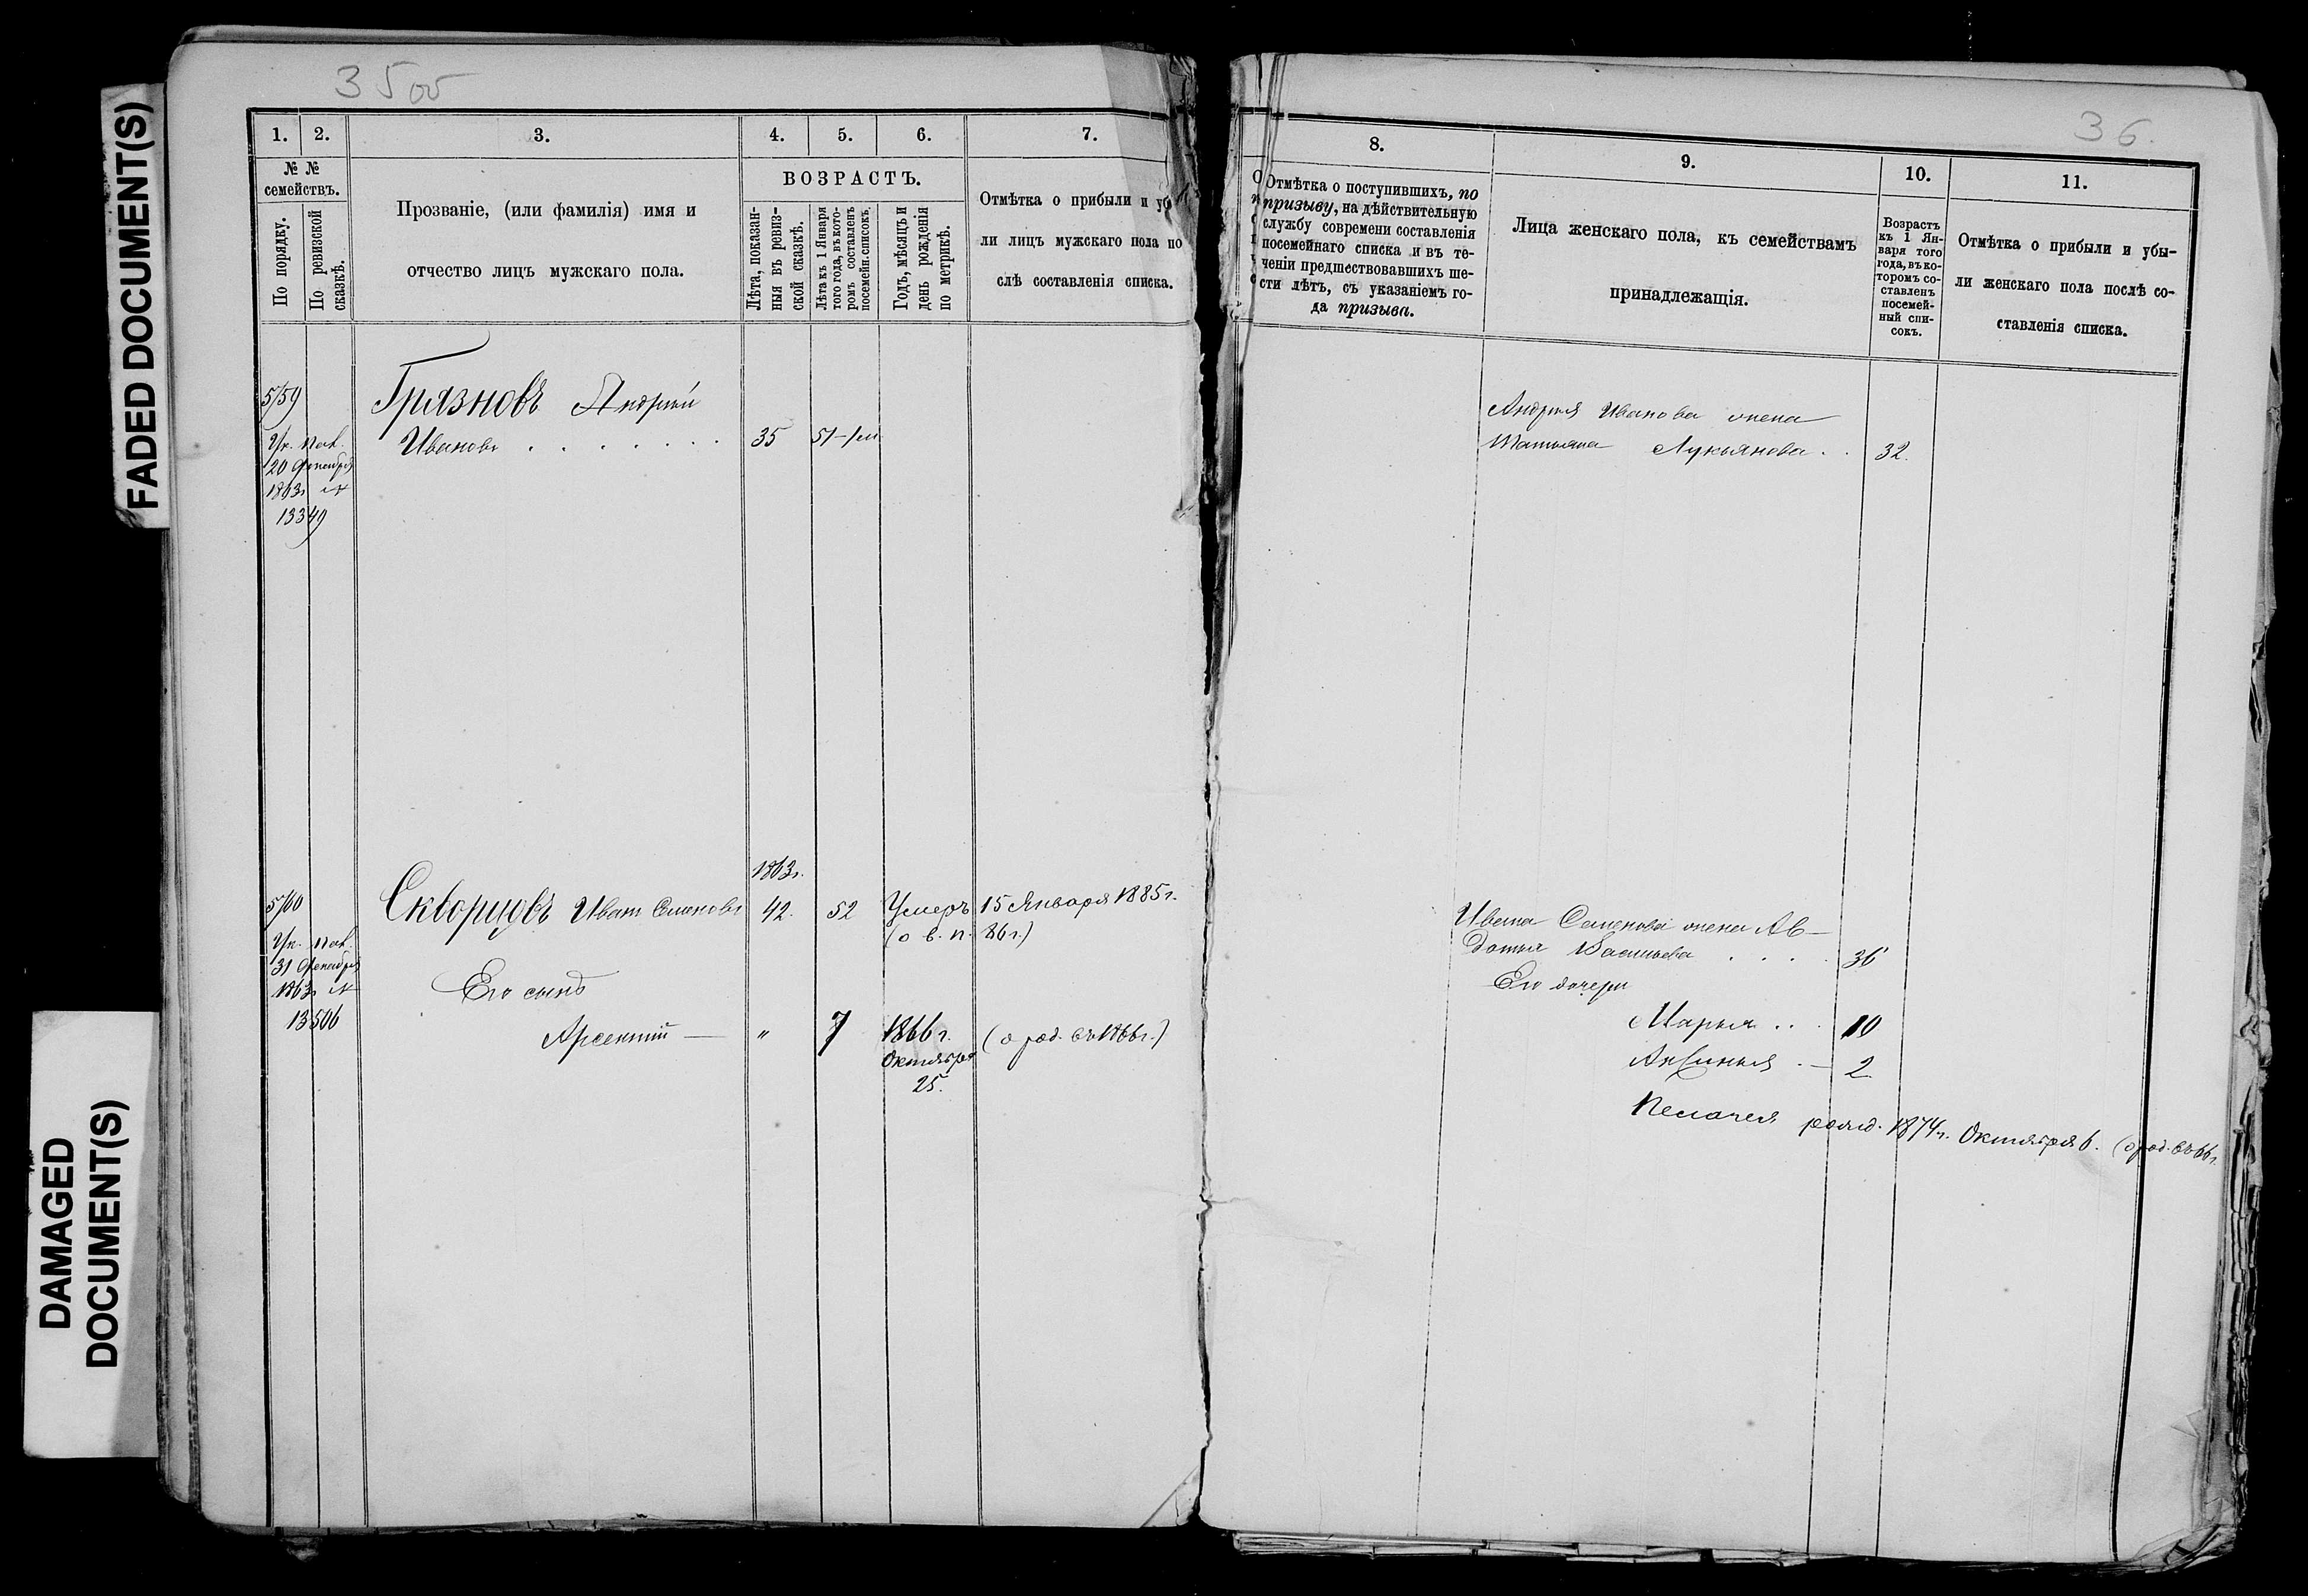 FADED DOCUMENT(S)
DAMAGED
DOCUMENT(S)
35 об
1. 2. 3. 4. 5. 6. 7.
№ №
семействъ.
По порядку.
По ревизской
сказкѣ.
Прозваніе, (или фамилія) имя и
отчество лицъ мужскаго пола.
ВОЗРАСТЪ.
Лѣта, показан-
ныя въ ревиз-
ской сказкѣ.
Лѣта къ 1 Января
того года, въ кото-
ромъ составленъ
посемейн. списокъ.
Годъ, мѣсяцъ и
день рожденія
по метрикѣ.
Отмѣтка о прибыли и уб
ли лицъ мужскаго пола по
слѣ составленія списка.
5/59
Грязновъ Андрей
Ивановъ 35 51
Ук. Пал.
20 Декабря
1863г №
13349
1863г.
5/60
Скворцовъ Иванъ Семеновъ 42. 52 Умеръ 15 Января 1885г.
(о в. п. 86 г.)
Ук. Пал.
31 Декабря
1863г №
13506
Его сынъ
Арсентий — " 7 1866 г. (о род. въ 1866г.)
Октября
25.
36.
8. 9. 10. 11.
Отмѣтка о поступившихъ, по
призыву, на дѣйствительную
службу современи составленія
посемейнаго списка и въ те-
ченіи предшествовавшихъ ше-
сти лѣтъ, съ указаніемъ го-
да призыва.
Лица женскаго пола, къ семействамъ
принадлежащія.
Возрастъ
къ 1 Ян-
варя того
года, въ ко-
торомъ со-
ставленъ
посемей-
ный спи-
сокъ.
Отмѣтка о прибыли и убы-
ли женскаго пола послѣ со-
ставленія списка.
Андрея Иванова жена
Татьяна Лукьянова 32.
Ивана Семенова жена Ав-
дотья Васильева 36
Его дочери
Марья 10
Аксинья 2
Пелагея рожд. 1874г. Октября 6. (о род. въ 66г.